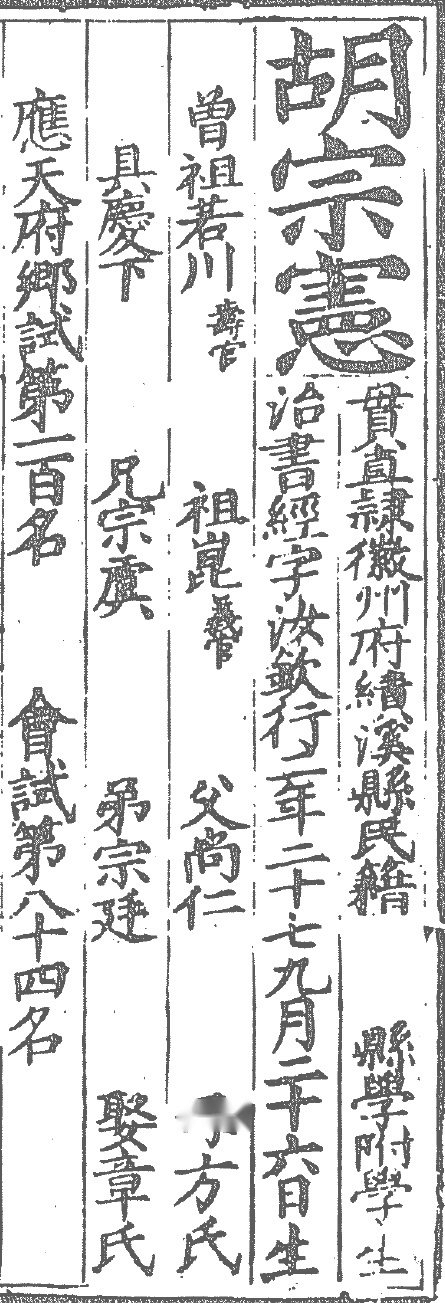 胡宗憲
貫直隸徽州府績溪縣民籍 縣學附學生
治書經字汝欽行二年二十七九月二十六日生
曾祖若川壽官 祖崑義官 父尚仁 方氏
具慶下 兄宗虞 弟宗 娶章氏
應天府鄉試第一百名 會試第八十四名